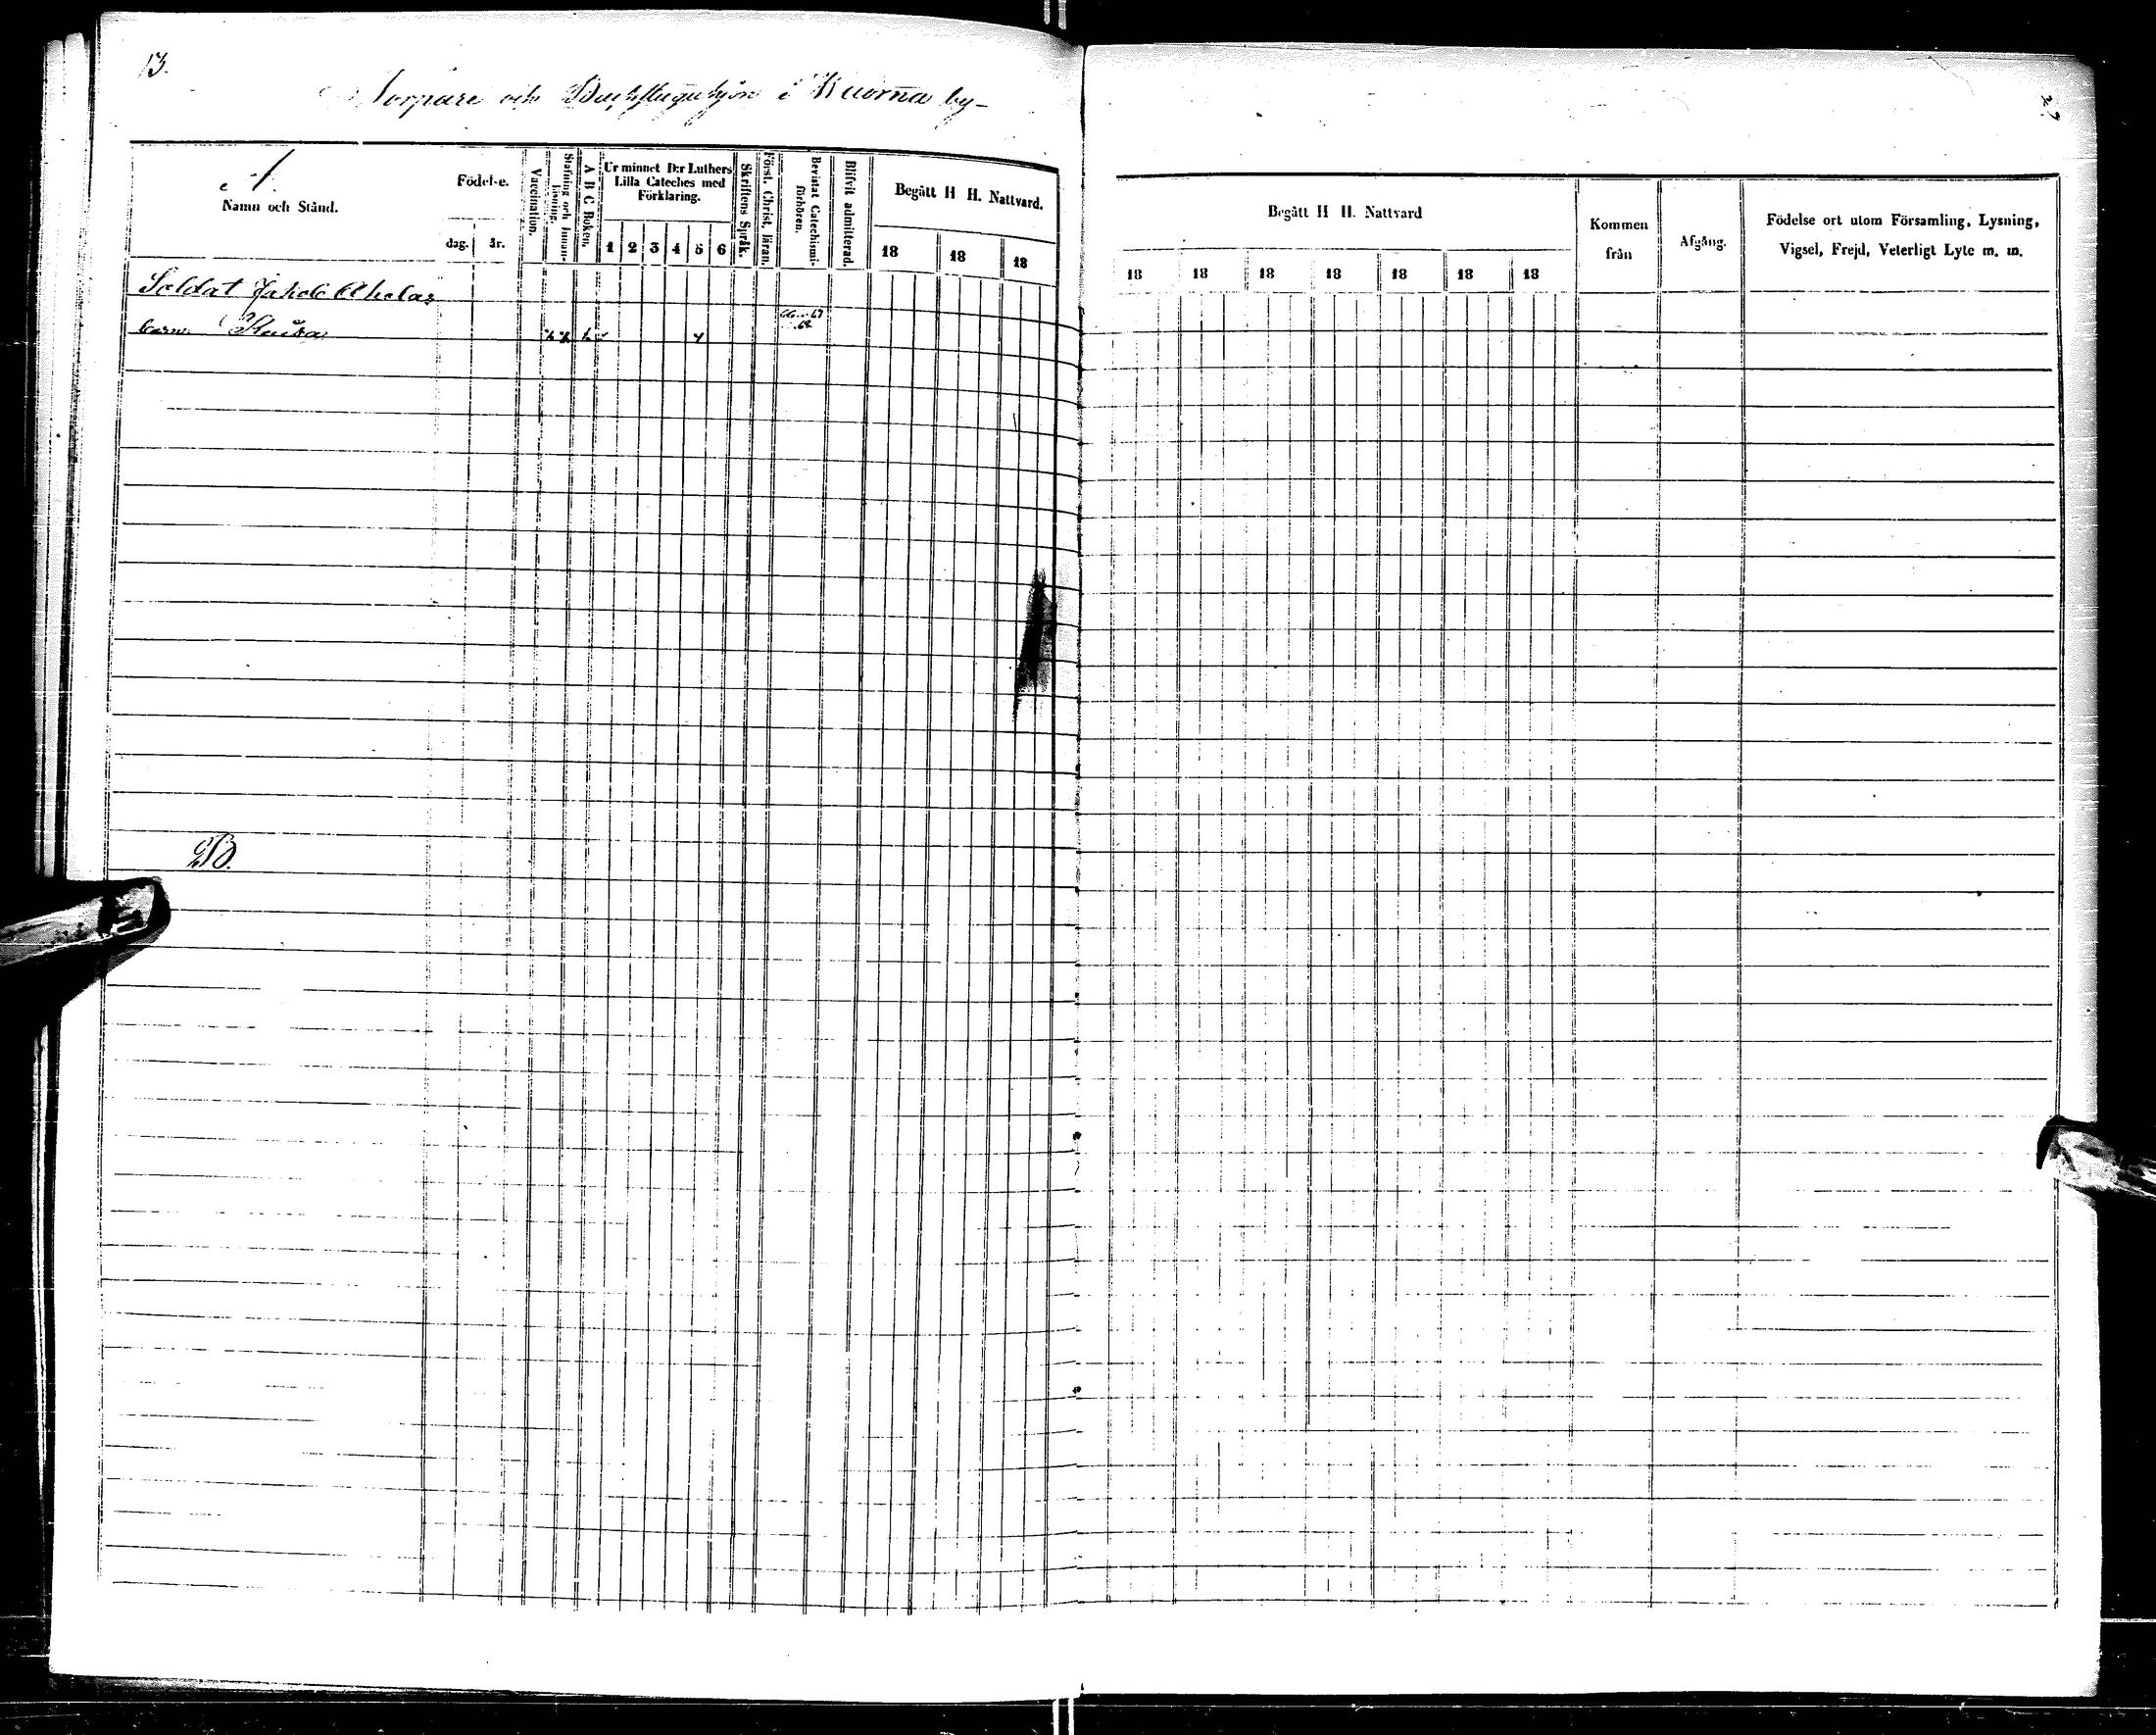 13.
Torpare och Backstuguhjon i Kuorna by
A.
Namn och Stånd.
Födelse.
dag. år.
Vaccination.
Stafning och Innanläsning.
A B C Boken.
Ur minnet D:r Luthers Lilla Cateches med Förklaring.
1 2 3 4 5 6
Skriftens Språk.
Först. Christ. läran.
Bevistat Catechismi-förhören.
Blifvit admitterad.
Begått H H. Nattvard.
18 18 18
Begått H H. Nattvard
18 18 18 18 18 18 18
Kommen från
Afgång.
Födelse ort utom Församling, Lysning, Vigsel, Frejd, Veterligt Lyte m. m.
Soldat Jakob
B.